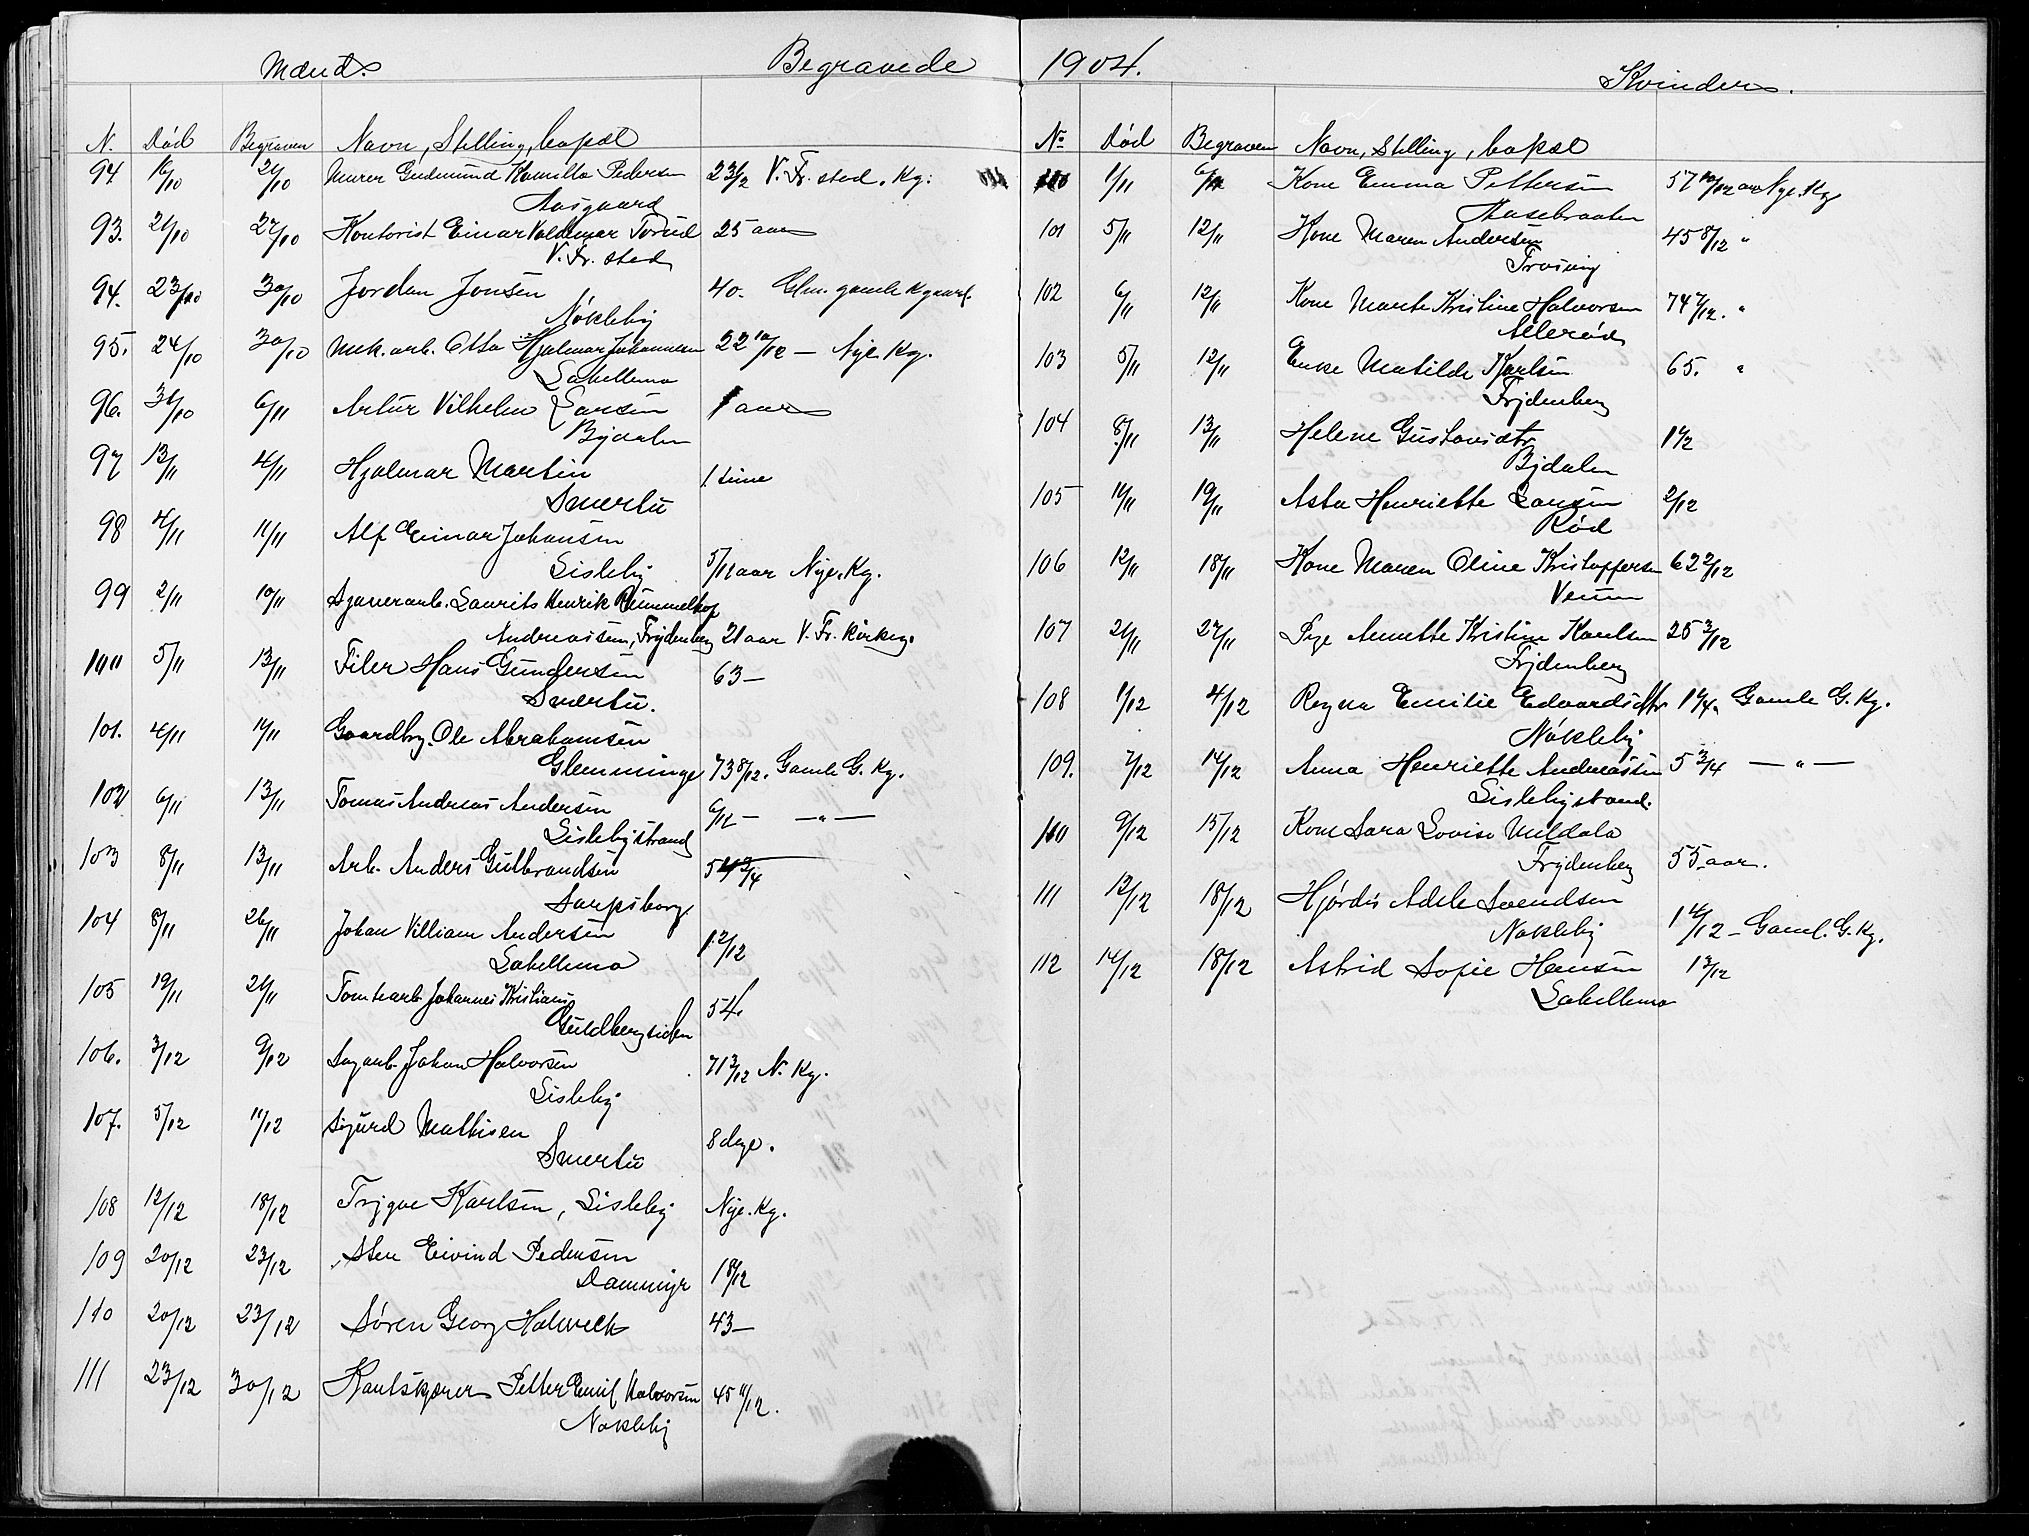 Mænd. Begravede
N. Død Begraven Navn, Stilling, bopæl
94 16/10 21/10 Murer Gudmund Kamillo Pedersen 23 1/2 V. Fr. sted. Kg.
Aasgaard
93. 21/10 27/10 Kontorist Einar Valdemar Torud 25 aar
V. Fr. sted
94. 23/10 30/10 Jordan Jonsen 40. Glm. gamle Kgaard.
Nøkleby
95. 24/10 30/10 Mek. arb. Otto Hjalmar Johannesen 22 10/12 — Nye. Kg.
Labellema
96. 31/10 6/11 Artur Vilhelm Larsen 1 aar
Bydalen
97 13/11 4/11 Hjalmar Martin 1 time
Smertu
98 4/11 11/11 Alf Einar Johansen
Lisleby 5/11 aar Nye. Kg.
99 2/11 10/11 Laurits Henrik Rummelhof
Andreassen, Frydenberg 21 aar V. Fr. Kirkeg.
100 5/11 13/11 Filer Hans Gundersen 63 —
Smertu.
101. 4/11 11/11 Gaardbr. Ole Abrahamsen
Glemminge 73 8/12. Gamle G. Kg.
102 6/11 13/11 Tomas Andreas Andersen 6/12 — — " —
Lislebystrand
103 8/11 13/11 Arb. Anders Gulbrandsen 54 3/4
Sarpsborg
104 8/11 26/11 Johan Villiam Andersen 1 2/12
Labellema
105 19/11 21/11 Tomtearb. Johannes Kristians 54.
Guldbergsiden
106. 3/12 9/12 Sagarb. Johan Halvorsen 71 3/12 N. Kg.
Lisleby
107. 5/12 11/12 Sigurd Mathisen 8 dage.
Smertu
108 12/12 18/12 Trygve Karlsen, Lisleby Nye. Kg.
109 20/12 23/12 Sten Eivind Pedersen 1 8/12
Dammyr
110 20/12 23/12 Søren Georg Holweck 43 —
111 23/12 30/12 Kantskjærer Petter Emil Halvorsen 45 11/12.
Nøkleby
1904. Kvinder.
No Død Begraven Navn, Stilling, bopæl
100 1/11 6/11 Kone Emma Pettersen 57 10/12 aar Nye. Kg
Aasebraaten
101 5/11 12/11 Kone Maren Andersen 45 8/12 "
Trosvig
102 6/11 12/11 Kone Marte Kristine Halvorsen 74 7/12. "
Allerød
103 5/11 12/11 Enke Matilde Karlsen 65. "
Frydenberg
104 8/11 13/11 Helene Gustavsdtr 1 1/2
Bydalen
105 11/11 19/11 Asta Henriette Larsen 2/12
Rød
106 12/11 18/11 Kone Maren Oline Kristoffersen 62 2/12
Veum
107 21/11 27/11 Pge Annette Kristine Karlsen 25 3/12
Frydenberg
108 1/12 4/12 Ragna Emilie Edvardsdtr 1 1/4. Gamle G. Kg.
Nøkleby
109. 7/12 14/12 Anna Henriette Andreassen 5 3/4 — " —
Lislebystrand.
110 9/12 15/12 Kone Sara Lovise Mildala
Frydenberg 55 aar.
111 12/12 18/12 Hjørdis Adele Svendsen
Nøkleby 1 4/12 — Gaml. G. Kg.
112 14/12 18/12 Astrid Sofie Hansen 1 3/12
Labellema